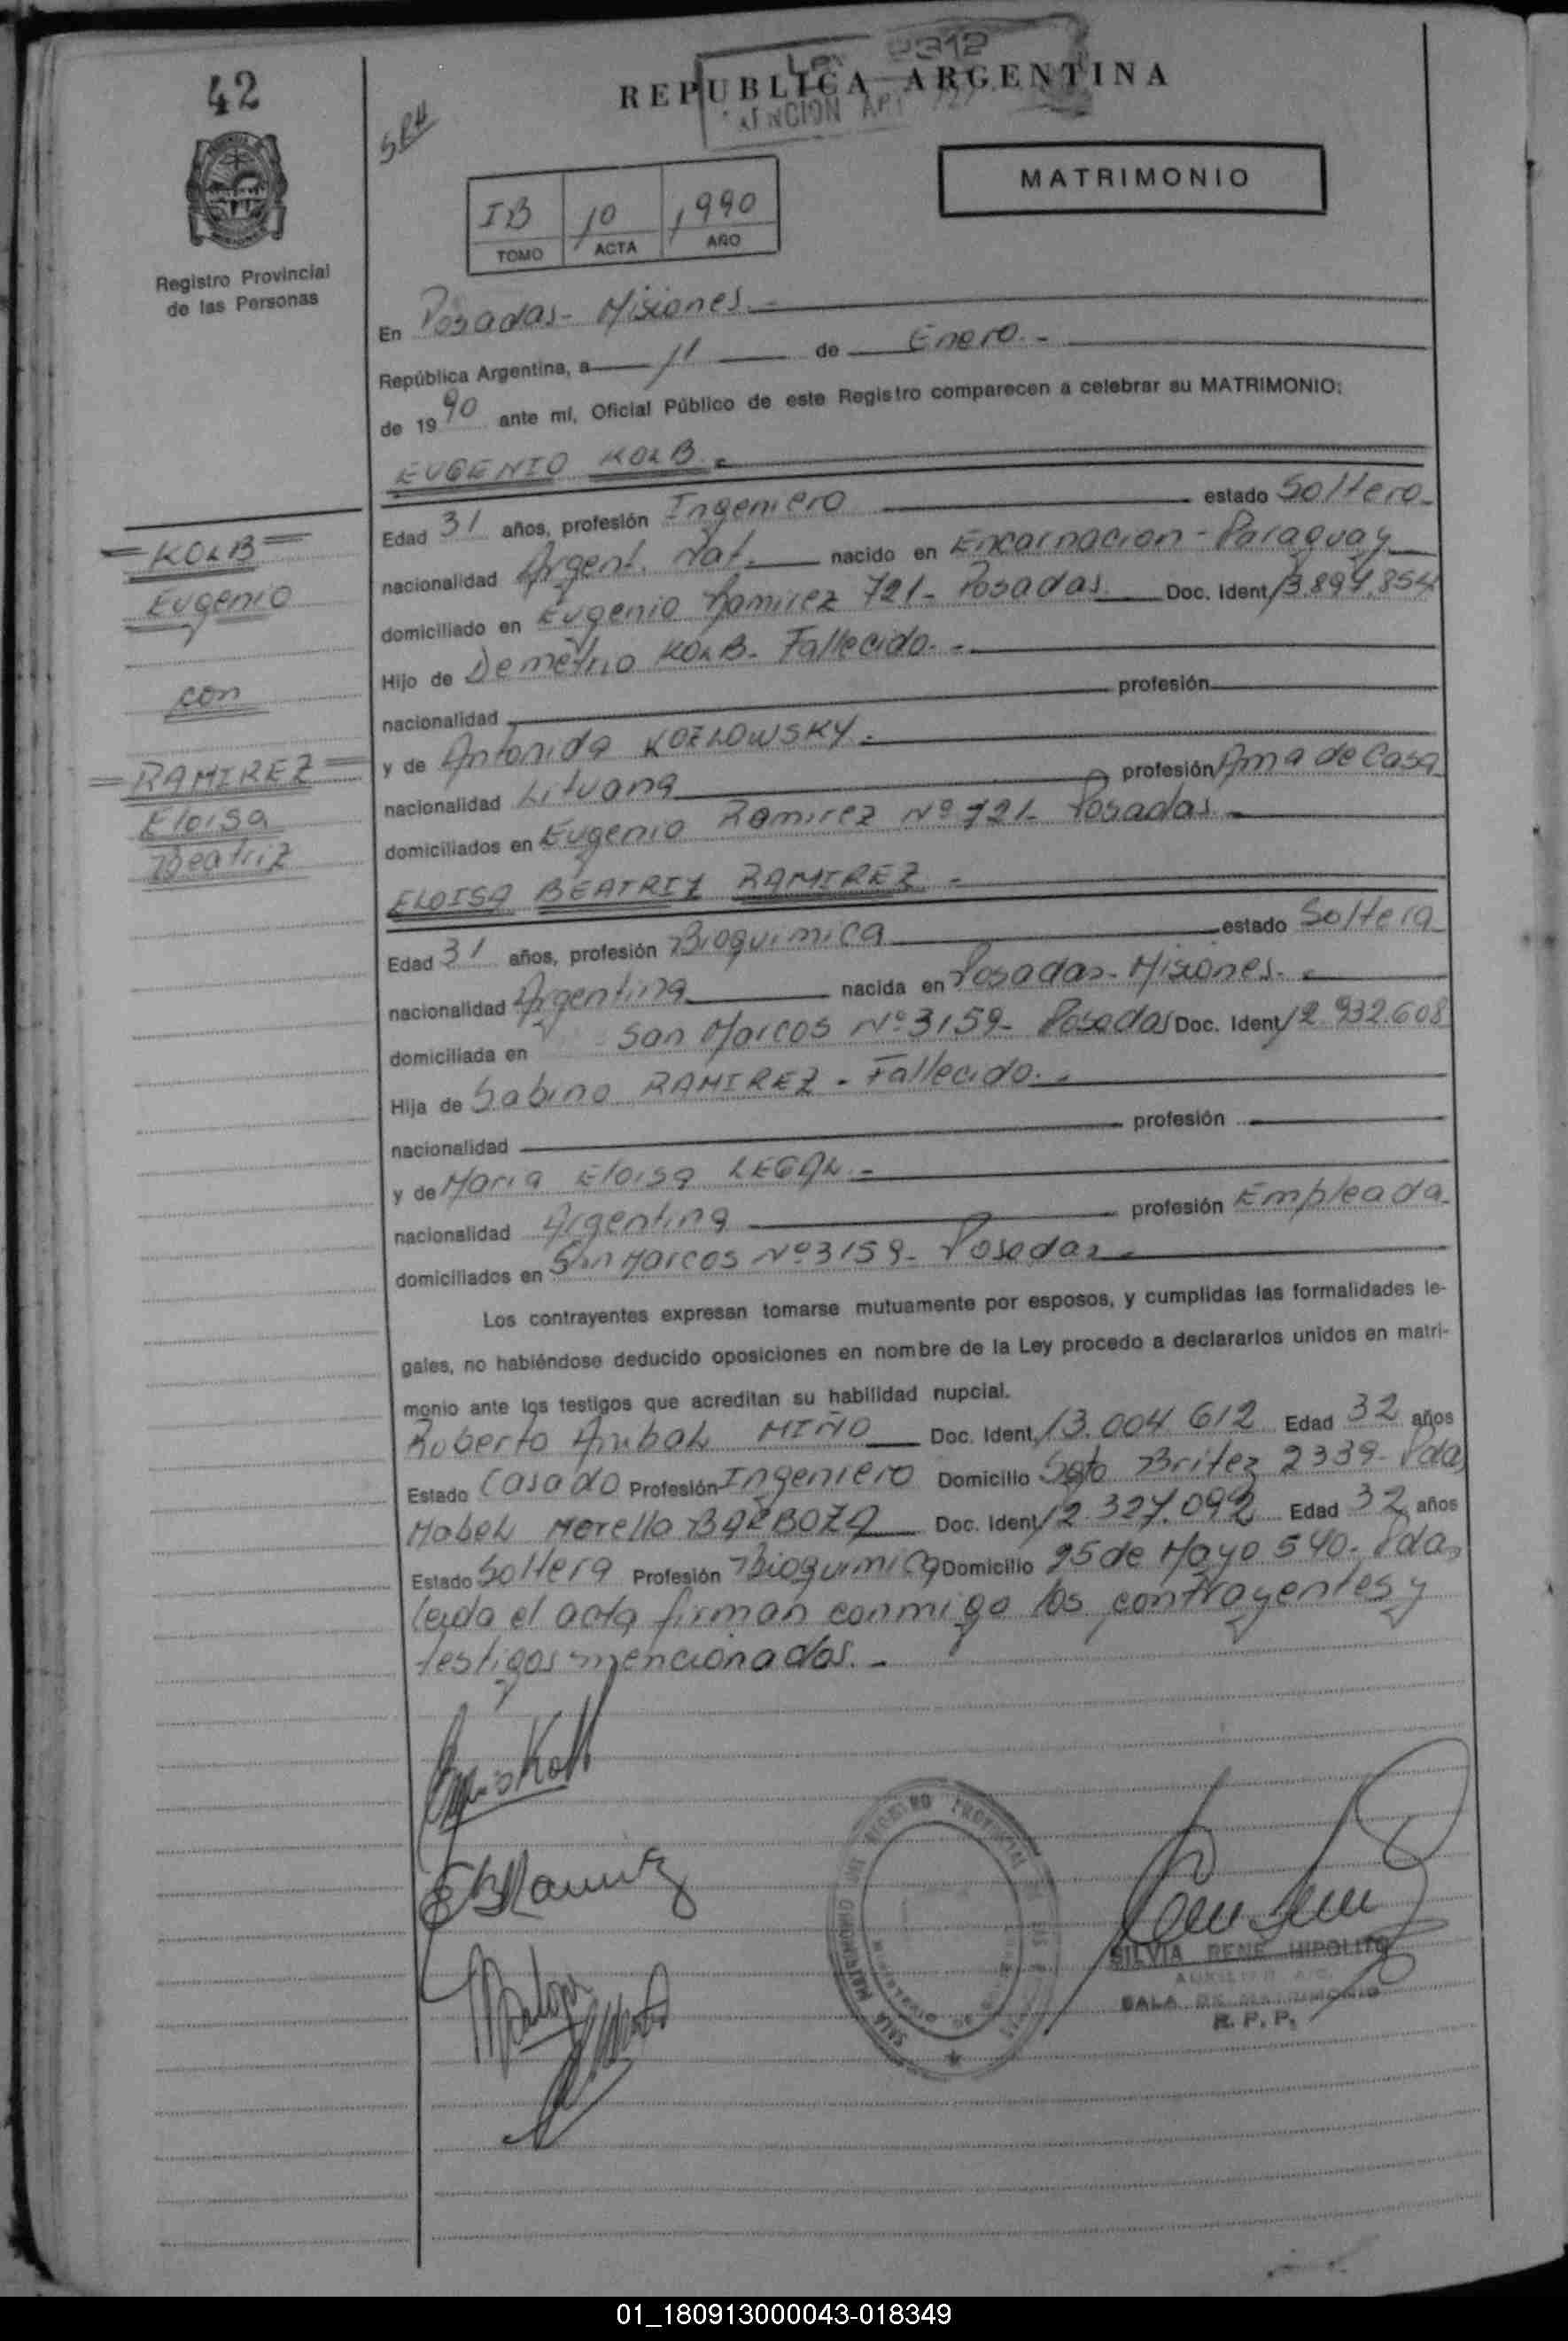 42
REPUBLICA ARGENTINA
MATRIMONIO
IB 10 1990
TOMO ACTA AÑO
Registro Provincial
de las Personas
En Posadas - Misiones.-
República Argentina, a 11 de Enero.-
de 1990 ante mí, Oficial Público de este Registro comparecen a celebrar su MATRIMONIO:
EUGENIO KOLB.-
Edad 31 años, profesión Ingeniero estado Soltero.
nacionalidad Argent. Nat. nacido en Encarnacion - Paraguay
domiciliado en Eugenio Ramirez 721 - Posadas. Doc. Ident. 13.897.854
Hijo de Demetrio KOLB - Fallecido.-
nacionalidad profesión
y de Antonida KOZLOWSKY.-
nacionalidad Lituana profesión Ama de Casa
domiciliados en Eugenio Ramirez Nº 721 - Posadas.
=KOLB=
Eugenio
con
=RAMIREZ=
Eloisa
Beatriz
ELOISA BEATRIZ RAMIREZ.-
Edad 31 años, profesión Bioquimica estado Soltera
nacionalidad Argentina nacida en Posadas - Misiones.-
domiciliada en San Marcos Nº 3159 - Posadas Doc. Ident. 12.932.608
Hija de Sabino RAMIREZ - Fallecido.-
nacionalidad profesión
y de Maria Eloisa LEGAL.-
nacionalidad Argentina profesión Empleada.
domiciliados en San Marcos Nº 3159 - Posadas.-
Los contrayentes expresan tomarse mutuamente por esposos, y cumplidas las formalidades le-
gales, no habiéndose deducido oposiciones en nombre de la Ley procedo a declararlos unidos en matri-
monio ante los testigos que acreditan su habilidad nupcial.
Roberto Anibal MIÑO Doc. Ident. 13.004.612 Edad 32 años
Estado Casado Profesión Ingeniero Domicilio Sgto Britez 2339 - Pdas
Mabel Morella BARBOZA Doc. Ident. 12.327.092 Edad 32 años
Estado Soltera Profesión Bioquimica Domicilio 25 de Mayo 540 - Pdas
leida el acta firman conmigo los contrayentes y
testigos mencionados.-
SILVIA RENE HIPOLITO
SALA DE MATRIMONIO
R. P. P.
01_180913000043-018349